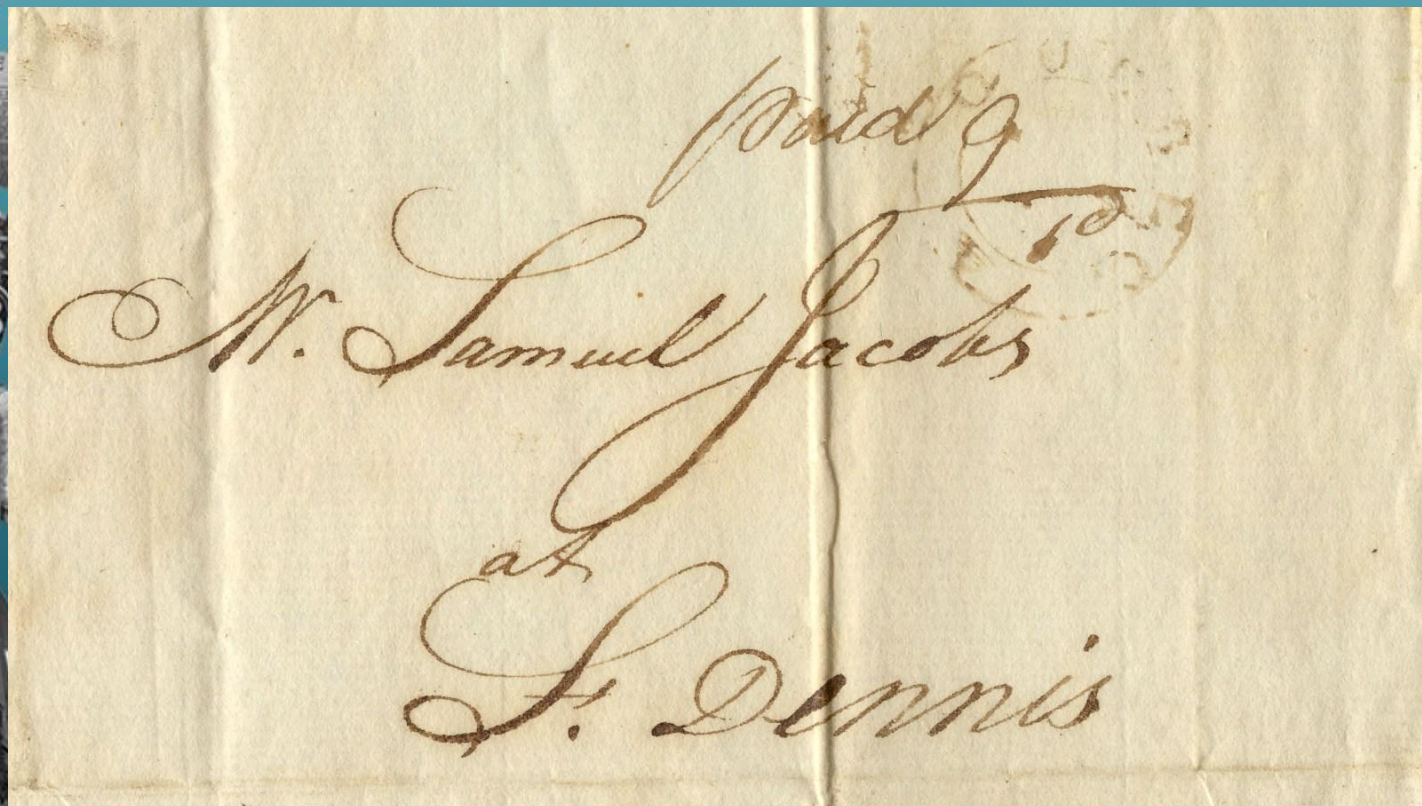 paid 9
1d
Mr. Samuel Jacobs
at
St. Dennis